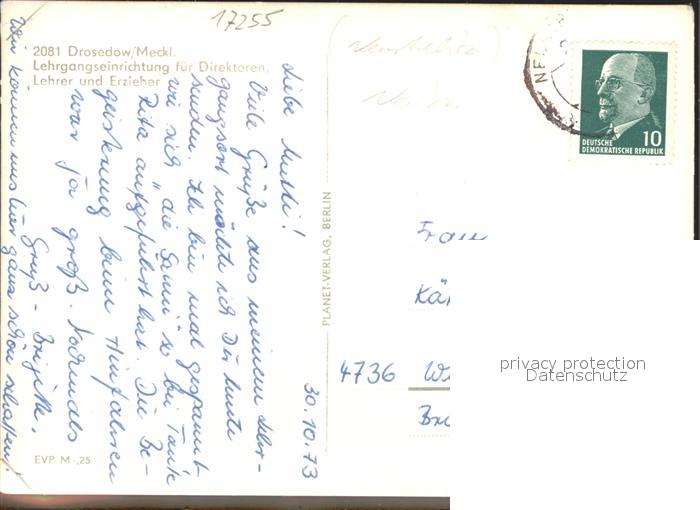 17255
2081 Drosedow/Meckl.
Lehrgangseinrichtung für Direktoren,
Lehrer und Erzieher
30.10.73
Liebe Mutti!
Viele Grüße aus meinem Lehr-
gangsort möchte ich Dir heute
senden. Ich bin mal gespannt
wie sich "die Sanni" so bei Tante
Rita aufgeführt hat. Die Be-
geisterung beim Hinfahren
war ja groß. Nochmals
Gruß - Brigitte.
Wir können uns hier ganz schön schaffen!
EVP M -,25
PLANET-VERLAG, BERLIN
NEU
10
DEUTSCHE
DEMOKRATISCHE REPUBLIK
Frau
Kä
4736 W
privacy protection
Datenschutz